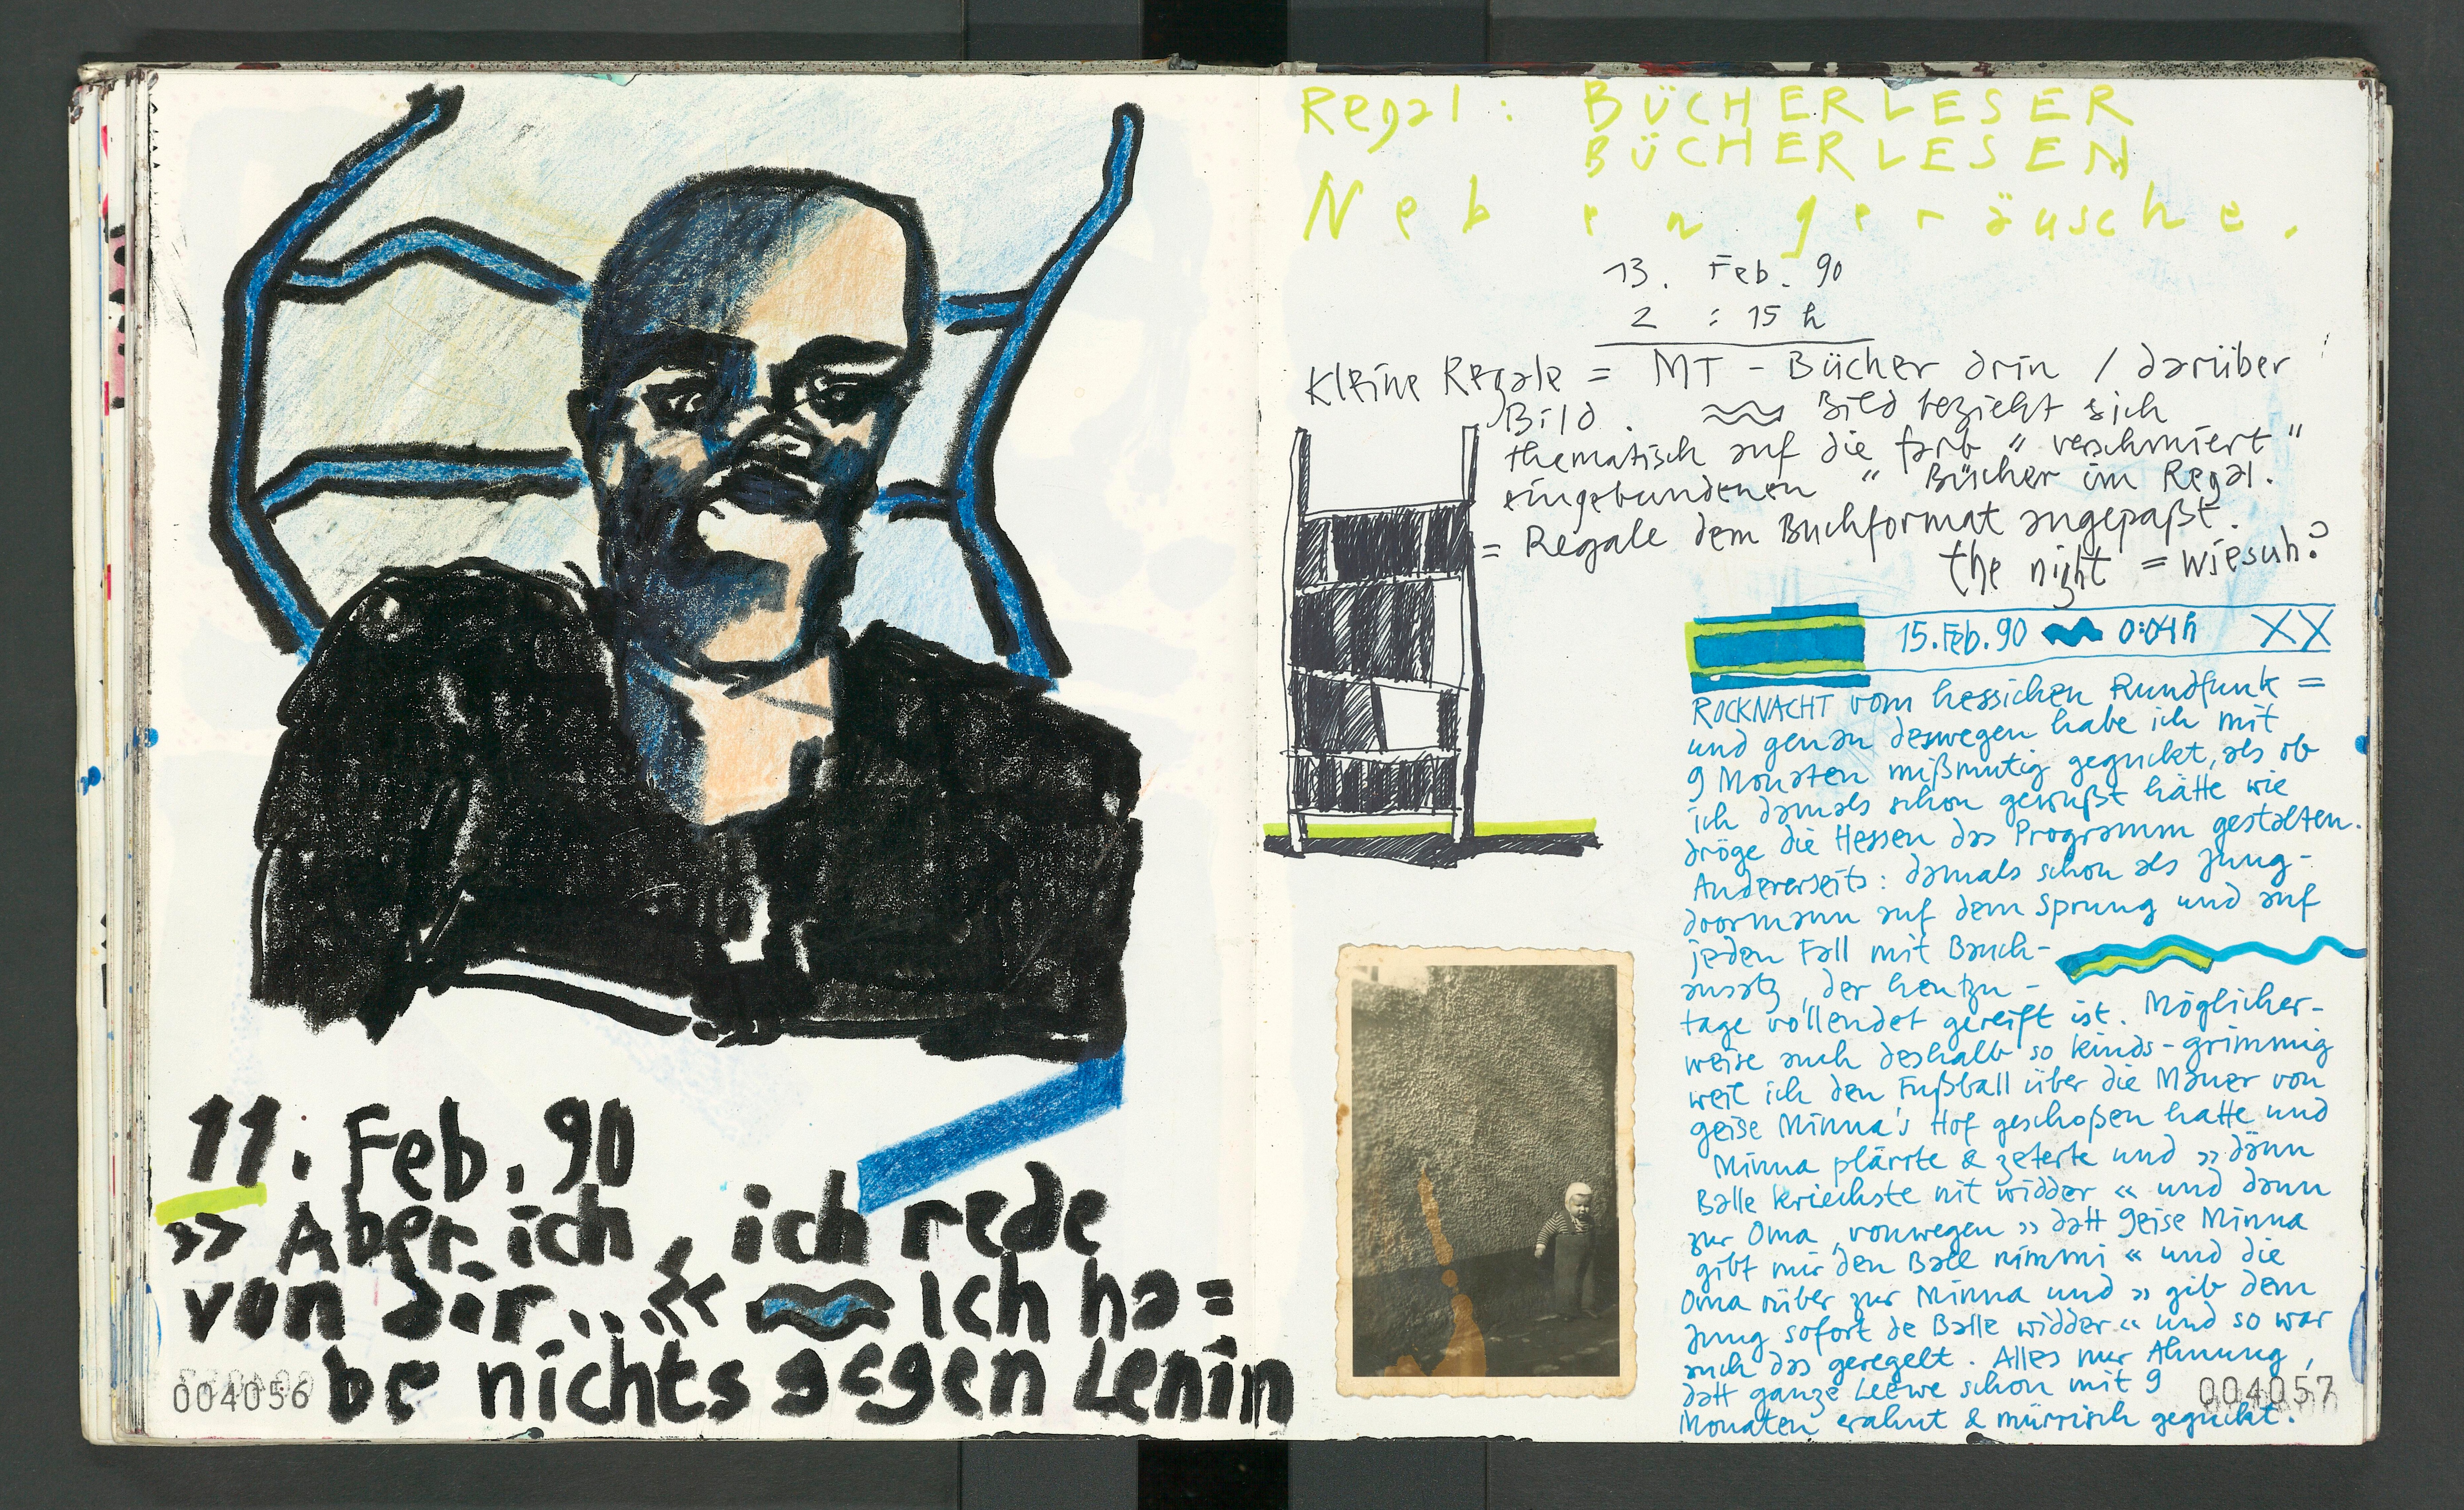 11. Feb. 90
>> Aber ich, ich rede
von dir... << ≈ Ich ha=
be nichts gegen Lenin
004056
Regal: BÜCHERLESER
BÜCHERLESEN
Nebengeräusche.
13. Feb. 90
2 : 15 h
Kleine Regale = MT - Bücher drin / darüber
Bild. ≈ Bild bezieht sich
thematisch auf die farb " verschmiert "
eingebundenen " Bücher im Regal.
= Regale dem Buchformat angepaßt.
the night = wiesuh?
15. Feb. 90 0:04 h XX
ROCKNACHT vom hessichen Rundfunk =
und genau deswegen habe ich mit
9 Monaten mißmutig geguckt, als ob
ich damals schon gewußt hätte wie
dröge die Hessen das Programm gestalten.
Andererseits: damals schon als Jung-
doormann auf dem Sprung und auf
jeden Fall mit Bauch-
ansatz, der heutzu-
tage vollendet gereift ist. Möglicher-
weise auch deshalb so kinds-grimmig
weil ich den Fußball über die Mauer von
geise Minna's Hof geschoßen hatte und
Minna plärrte & zeterte und >> dänn
Balle kriechste nit widder << und dann
zur Oma, vonwegen >> datt geise Minna
gibt mir den Balle nimmi << und die
Oma rüber zur Minna und >> gib dem
Jung sofort de Balle widder << und so war
auch das geregelt. Alles nur Ahnung,
datt ganze Leewe schon mit 9
Monaten erahnt & mürrisch geguckt.
004057